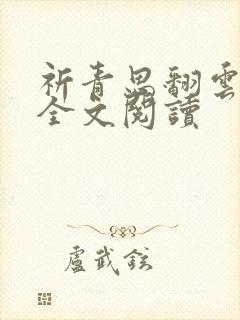 祈青思翻雲
全文閱讀
盧武鉉